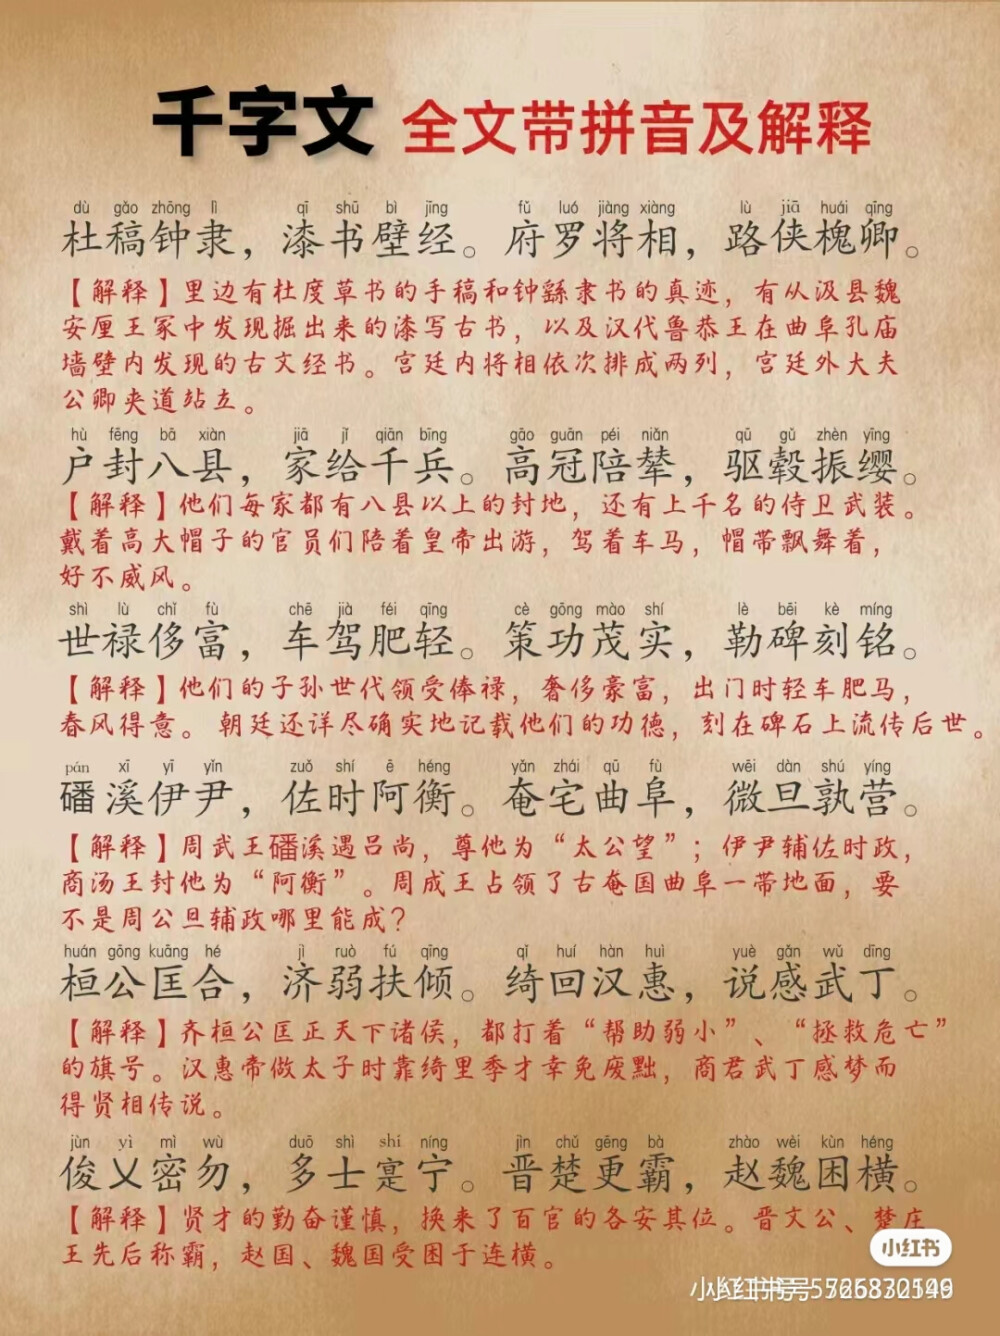 千字文 全文带拼音及解释
dù gǎo zhōng lì qī shū bì jīng fǔ luó jiàng xiàng lù jiā huái qīng
杜稿钟隶，漆书壁经。府罗将相，路侠槐卿。
【解释】里边有杜度草书的手稿和钟繇隶书的真迹，有从汲县魏
安厘王冢中发现掘出来的漆写古书，以及汉代鲁恭王在曲阜孔庙
墙壁内发现的古文经书。宫廷内将相依次排成两列，宫廷外大夫
公卿夹道站立。
hù fēng bā xiàn jiā jǐ qiān bīng gāo guān péi niǎn qū gǔ zhèn yīng
户封八县，家给千兵。高冠陪辇，驱毂振缨。
【解释】他们每家都有八县以上的封地，还有上千名的侍卫武装。
戴着高大帽子的官员们陪着皇帝出游，驾着车马，帽带飘舞着，
好不威风。
shì lù chǐ fù chē jià féi qīng cè gōng mào shí lè bēi kè míng
世禄侈富，车驾肥轻。策功茂实，勒碑刻铭。
【解释】他们的子孙世代领受俸禄，奢侈豪富，出门时轻车肥马，
春风得意。朝廷还详尽确实地记载他们的功德，刻在碑石上流传后世。
pán xī yī yǐn zuǒ shí ē héng yǎn zhái qū fù wēi dàn shú yíng
磻溪伊尹，佐时阿衡。奄宅曲阜，微旦孰营。
【解释】周武王磻溪遇吕尚，尊他为“太公望”；伊尹辅佐时政，
商汤王封他为“阿衡”。周成王占领了古奄国曲阜一带地面，要
不是周公旦辅政哪里能成？
huán gōng kuāng hé jì ruò fú qīng qǐ huí hàn huì yuè gǎn wǔ dīng
桓公匡合，济弱扶倾。绮回汉惠，说感武丁。
【解释】齐桓公匡正天下诸侯，都打着“帮助弱小”、“拯救危亡”
的旗号。汉惠帝做太子时靠绮里季才幸免废黜，商君武丁感梦而
得贤相传说。
jùn yì mì wù duō shì shí níng jìn chǔ gēng bà zhào wèi kùn héng
俊乂密勿，多士寔宁。晋楚更霸，赵魏困横。
【解释】贤才的勤奋谨慎，换来了百官的各安其位。晋文公、楚庄
王先后称霸，赵国、魏国受困于连横。
小红书